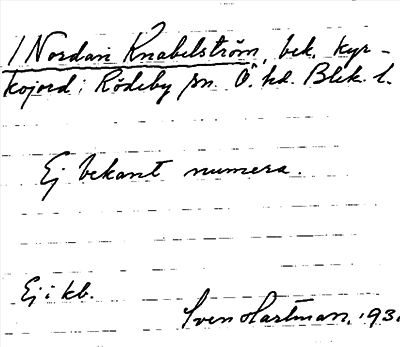 / Nordan Knabelström, bek. kyr-
kojord i Rödeby sn Ö. hd. Blek. l.
Ej bekant numera.
Ej i kb.
Sven Hartman. 193